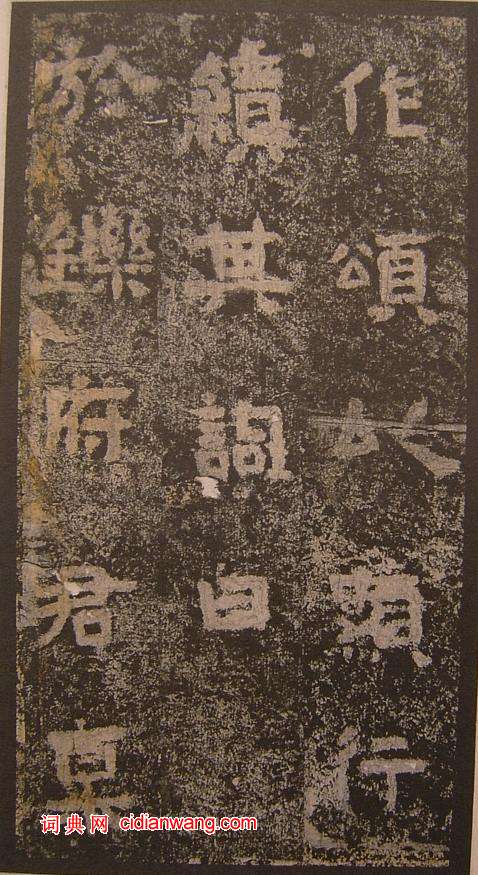 作頌以顯行
續其詞曰
於鑠府君
詞典网 cidianwang.com